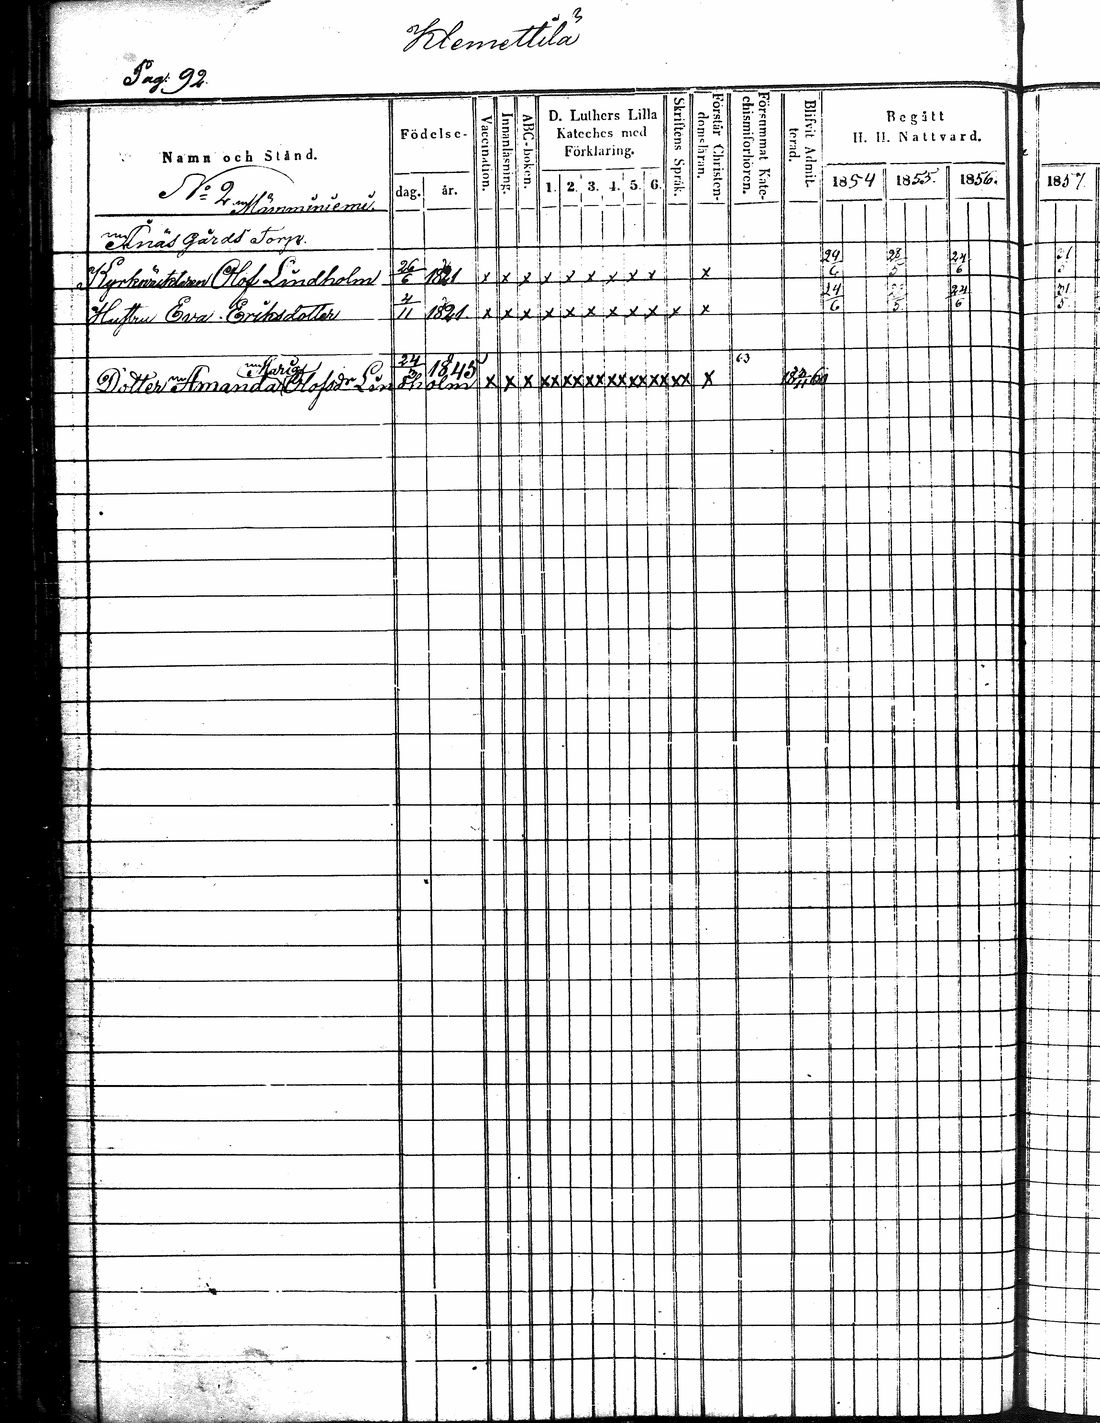 Klemettilä
Pag. 92.
Namn och Stånd.
Födelse-
dag. år.
Vaccination.
Innanläsning.
ABC-boken.
D. Luthers Lilla
Kateches med
Förklaring.
1. 2. 3. 4. 5. 6.
Skriftens Språk.
Förstår Christen-
domsläran.
Försummat Kate-
chismiförhören.
Blifvit Admit-
terad.
Begått
H. H. Nattvard.
1854 1855. 1856. 1857.
No 2 Mämminiemi.
näs Gårds Torp.
Olof Lindholm 26/6 1821 x x x x x x x x x x 24/6 28/5 24/6
Hustru Eva Eriksdotter 4/11 1821. x x x x x x x x x x x 24/6 24/6
Maria 63
Dotter Amanda Olofsdr Lindholm 24/5 1845 x x x xx xx xx xx xx xx xx x